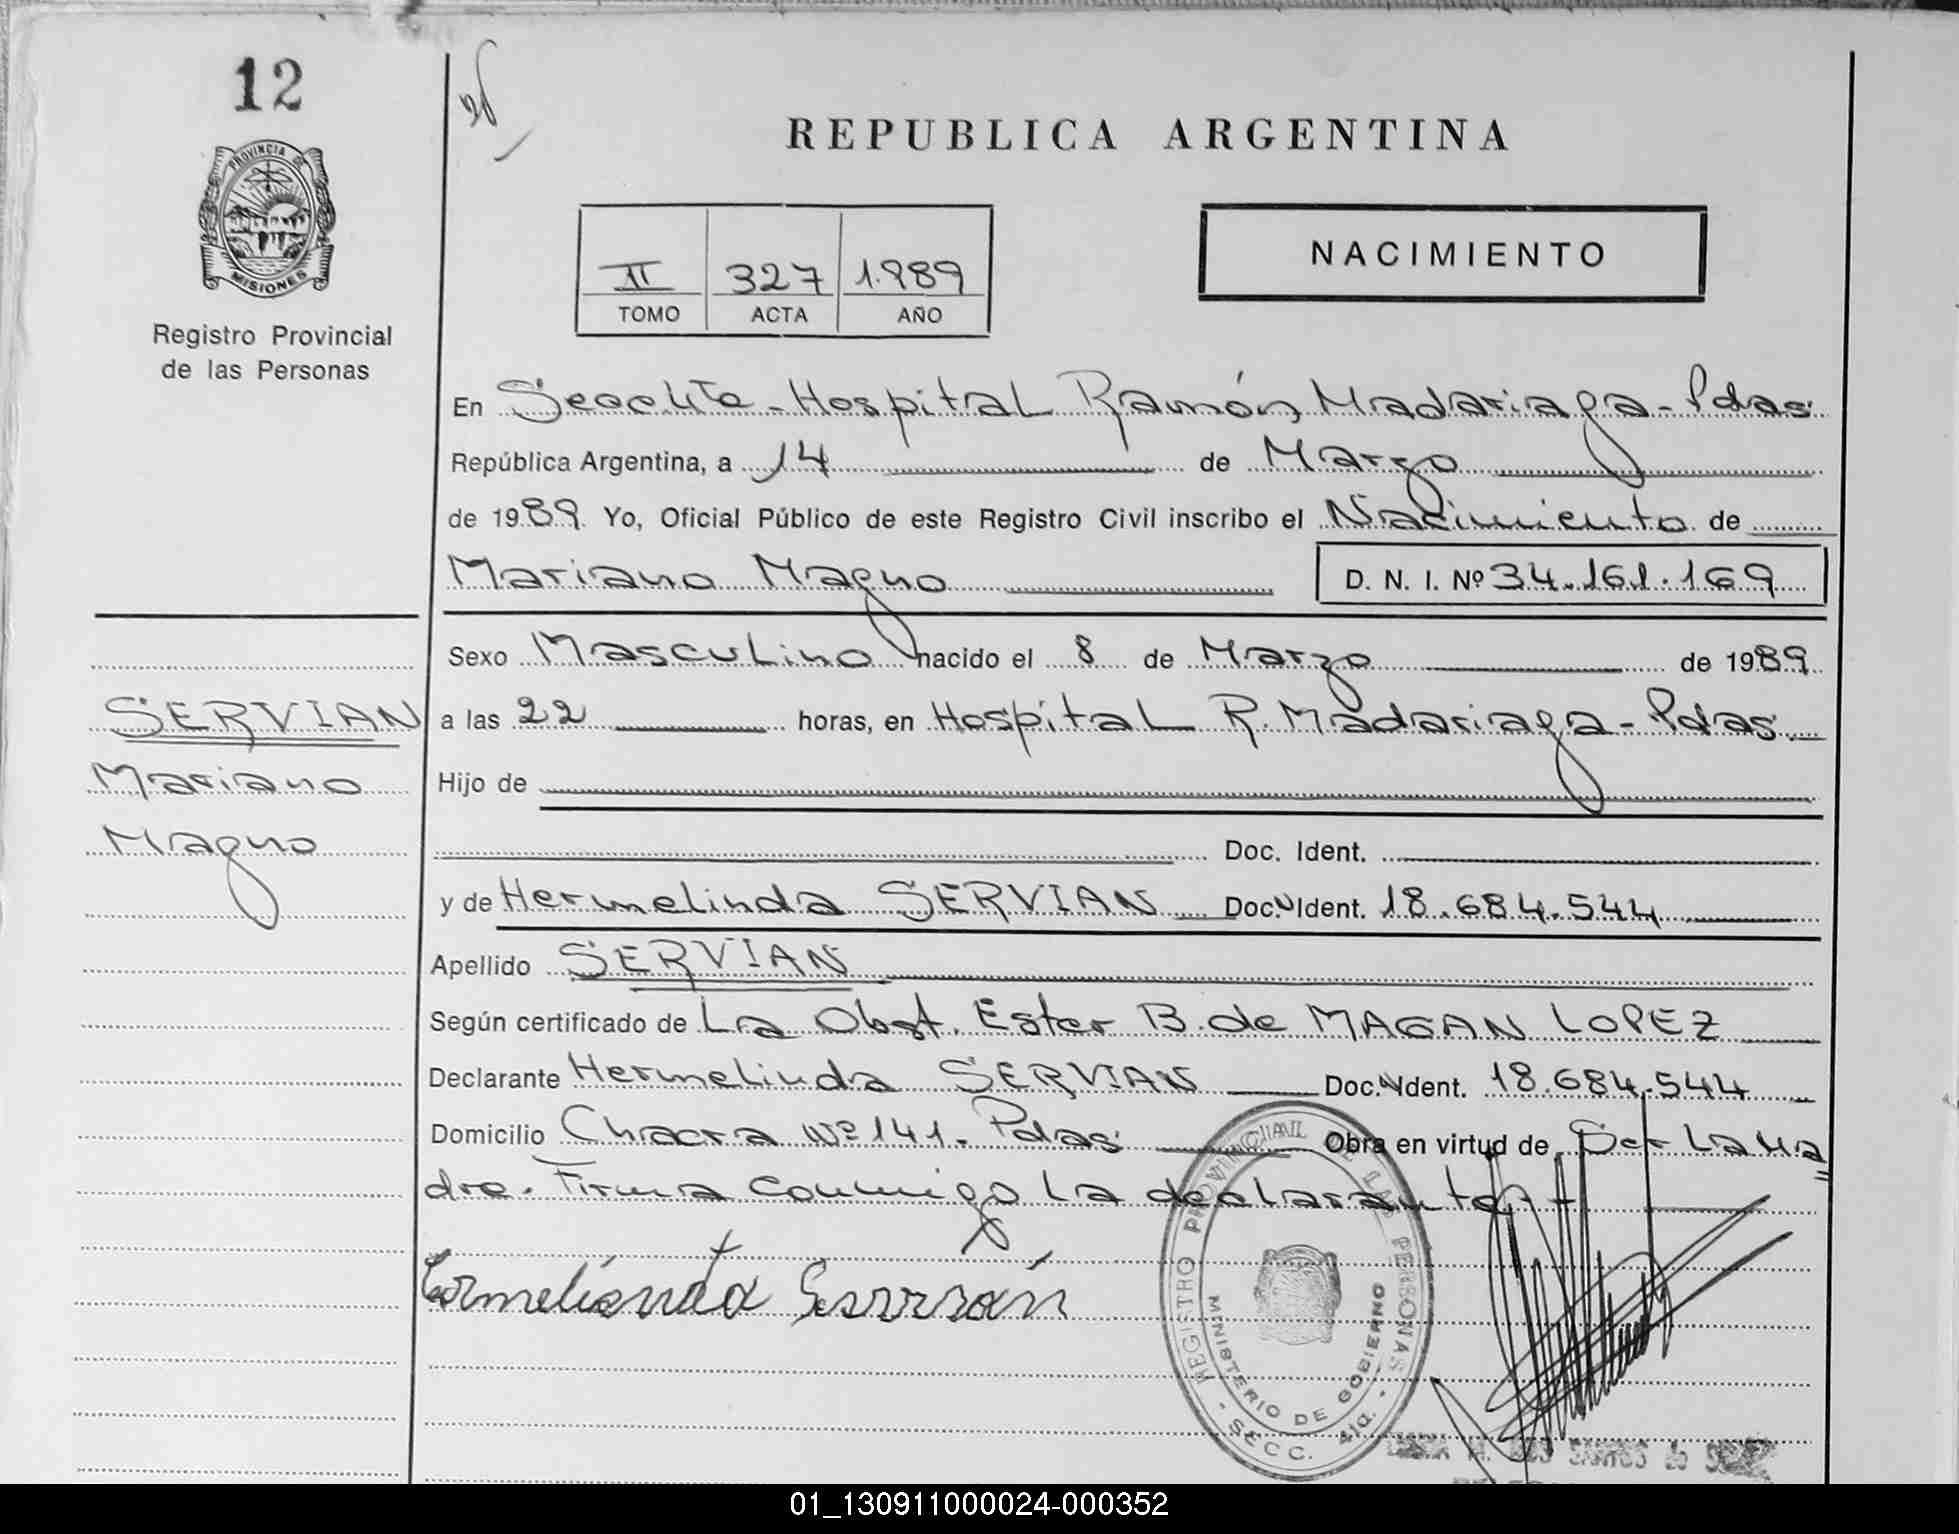 12
REPUBLICA ARGENTINA
PROVINCIA DE
MISIONES
Registro Provincial
de las Personas
II 327 1.989
TOMO ACTA AÑO
NACIMIENTO
En Hospital Ramón Madariaga - Pdas
República Argentina, a 14 de Marzo
de 1989. Yo, Oficial Público de este Registro Civil inscribo el Nacimiento de
Mariano Magno D. N. I. Nº 34.161.169
Sexo Masculino nacido el 8 de Marzo de 1989
SERVIAN
Mariano
Magno
a las 22 horas, en Hospital R. Madariaga - Pdas.
Hijo de
Doc. Ident.
y de Hermelinda SERVIAN Doc. Ident. 18.684.544
Apellido SERVIAN
Según certificado de La Obst. Ester B. de MAGAN LOPEZ
Declarante Hermelinda SERVIAN Doc. Ident. 18.684.544
Domicilio Chacra Nº 141. Pdas Obra en virtud de Ser La Ma=
dre. Firma conmigo la declarante
REGISTRO PROVINCIAL DE LAS PERSONAS
MINISTERIO DE GOBIERNO
- SECC. 4ta. -
01_130911000024-000352